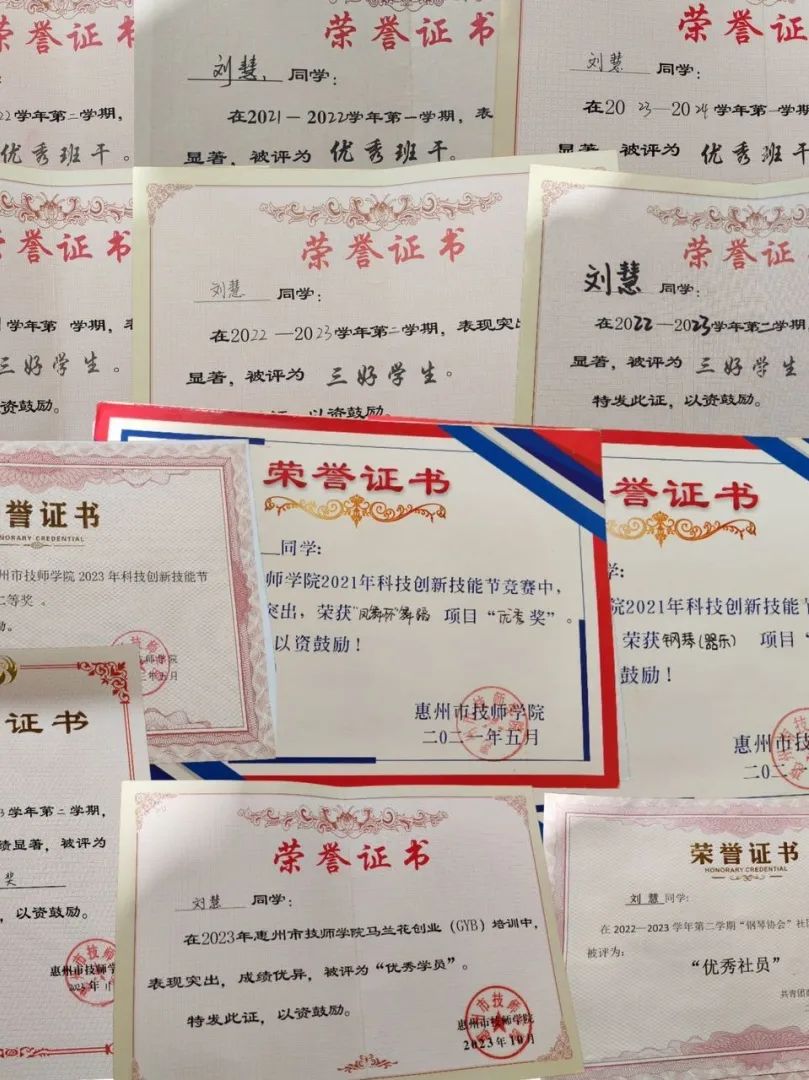 荣誉证书
22学年第二学期，
优秀班干。
荣誉证书
刘慧， 同学：
在2021－2022学年第一学期，表
显著，被评为 优秀班干。
荣誉证
刘慧 同学：
在2023—2024学年第一学期
显著，被评为 优秀班干。
荣誉证书
学年第 学期，
三好学生。
资鼓励。
荣誉证书
刘慧 同学：
在2022—2023学年第二学期，表现突出
显著，被评为 三好学生。
以资鼓励
荣誉证
刘慧 同学：
在2022—2023学年第二学期
显著，被评为 三好学生
特发此证，以资鼓励。
誉证书
HONORARY CREDENTIAL
州市技师学院 2023 年科技创新技能节
二等奖 。
励。
技师学院
三年五月
荣誉证书
同学：
师学院2021年科技创新技能节竞赛中，
突出，荣获“凤舞杯”舞蹈 项目“优秀奖”。
以资鼓励！
惠州市技师学院
二〇二一年五月
誉证书
学：
院2021年科技创新技能节
荣获钢琴(器乐) 项目“
鼓励！
惠州市技
二〇二
证书
学年第二学期，
绩显著，被评为
奖
，以资鼓励。
惠州市技师学
2023年11
荣誉证书
刘慧 同学：
在2023年惠州市技师学院马兰花创业（GYB）培训中，
表现突出，成绩优异，被评为“优秀学员”。
特发此证，以资鼓励。
惠州市技师学院
2023年10月
荣誉证书
HONORARY CREDENTIAL
刘 慧 同学：
在 2022—2023 学年第二学期“钢琴协会”社团
被评为：
“优秀社员”
共青团